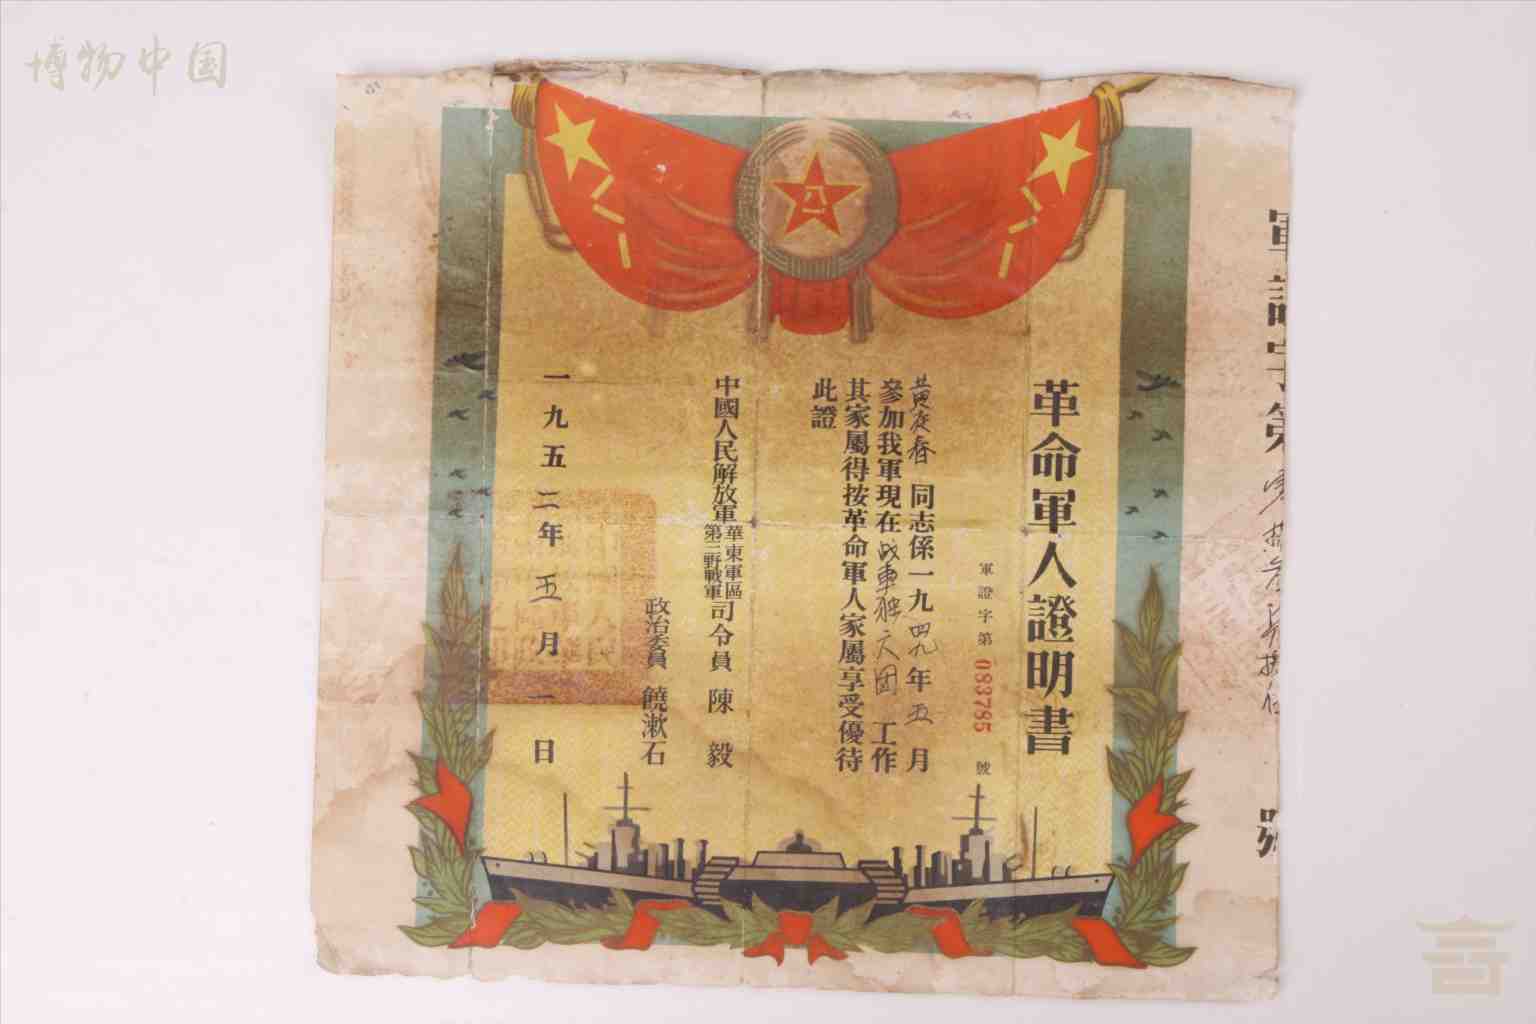 博物中国
革命軍人證明書
軍證字第083785號
黄庭春同志係一九四九年五月
參加我軍現在战車独六团工作
其家屬得按革命軍人家屬享受優待
此證
中國人民解放軍華東軍區第三野戰軍司令員陳毅
政治委員饒漱石
一九五二年五月一日
軍證字第
號
八一